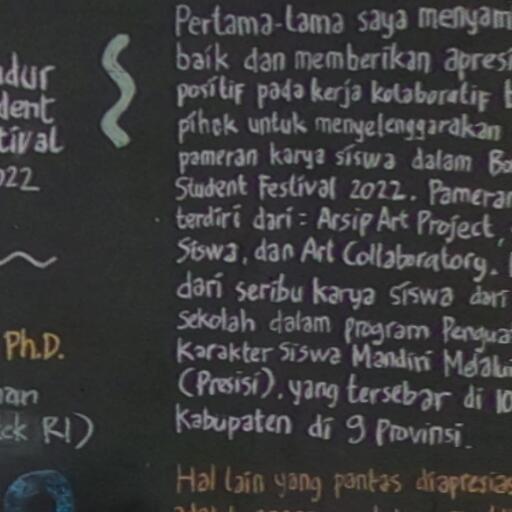 Pertama-tama saya menyam
baik dan memberikan apresi
positif pada kerja kolaboratif
pihak untuk menyelenggarakan
pameran karya siswa dalam Bo
Student Festival 2022. Pameran
terdiri dari: Arsip Art Project,
Siswa, dan Art Collaboratory.
dari seribu karya siswa dari
sekolah dalam program Pengua
Karakter Siswa Mandiri Melalui
(Presisi), yang tersebar di 10
Kabupaten di 9 Provinsi.
Hal lain yang pantas diapresias
udur
dent
tival
022
Ph.D.
nan
ek RI)